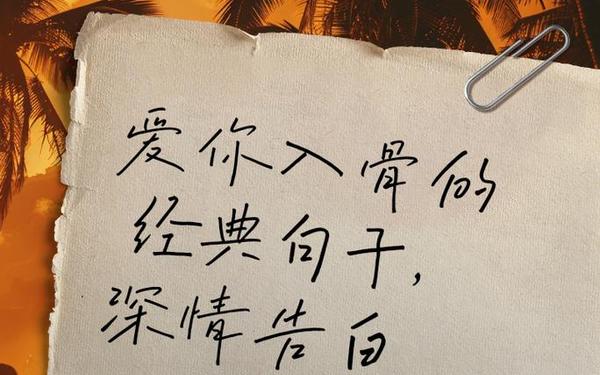 爱你入骨的
经典句子,
深情告白